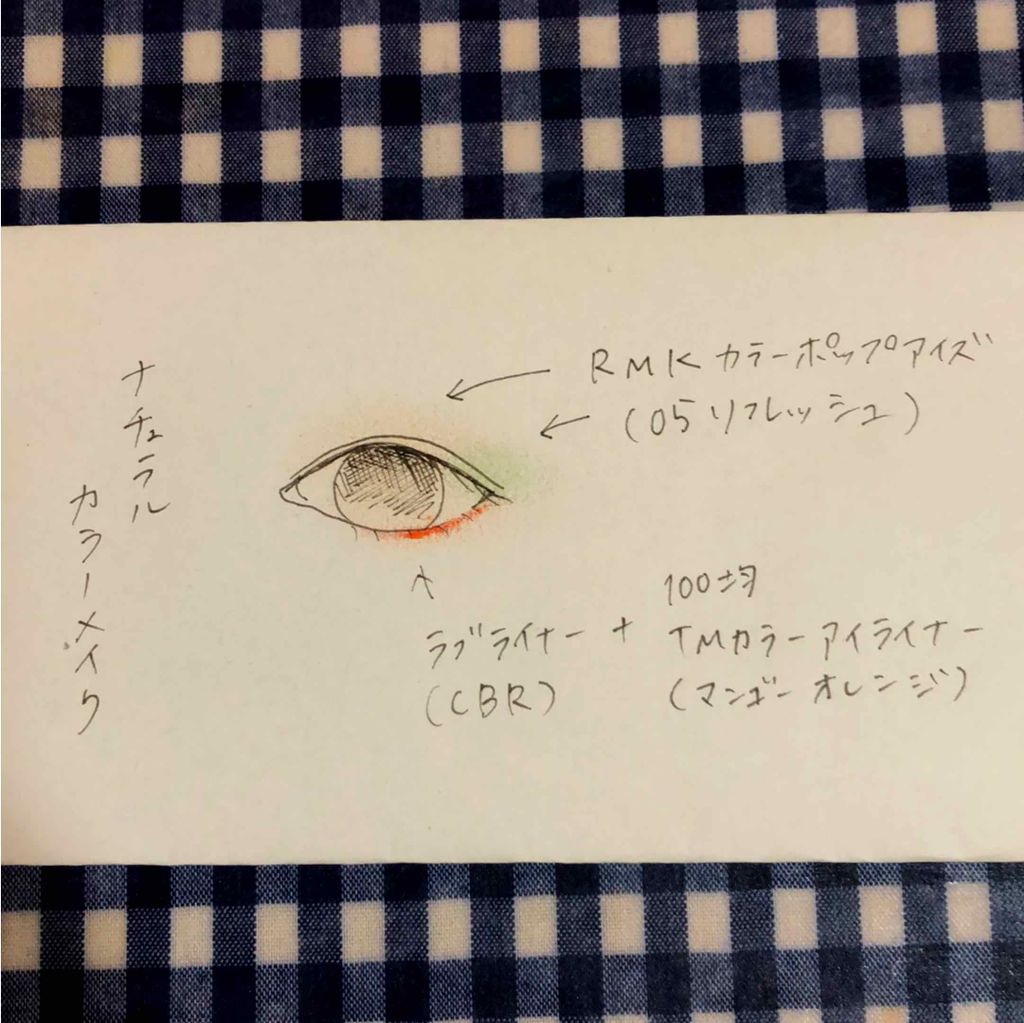 ナチュラル
カラーメイク
RMK カラーポップアイズ
(05リフレッシュ)
ラブライナー + 100均
(CBR)
TMカラーアイライナー
(マンゴーオレンジ)